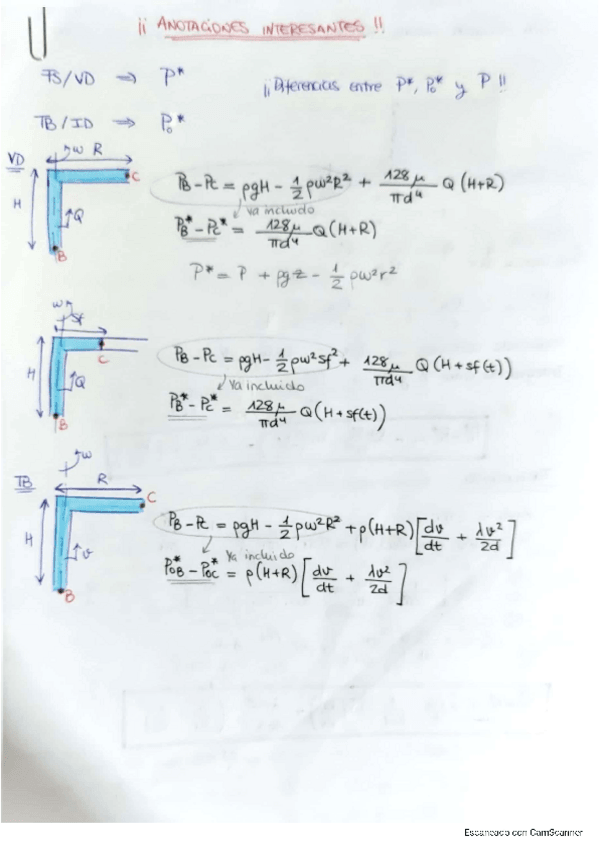 ¡¡ ANOTACIONES INTERESANTES !!
FS/VD ⇒ P*
¡¡Diferencias entre P*, Po* y P !!
TB/ID ⇒ Po*
VD
ω R
C
H
Q
B
PB - PC = ρgH - 1/2 ρω²R² + 128μ/πd⁴ Q (H+R)
Ya incluido
PB* - PC* = 128μ/πd⁴ Q (H+R)
P* = P + ρgz - 1/2 ρω²r²
ω
Sf
C
H
Q
B
PB - PC = ρgH - 1/2 ρω²Sf² + 128μ/πd⁴ Q (H + sf(t))
Ya incluido
PB* - PC* = 128μ/πd⁴ Q (H + sf(t))
TB
ω
R
C
H
v
B
PB - PC = ρgH - 1/2 ρω²R² + ρ(H+R) [dv/dt + λv²/2d]
Ya incluido
PoB* - PoC* = ρ(H+R) [dv/dt + λv²/2d]
Escaneado con CamScanner